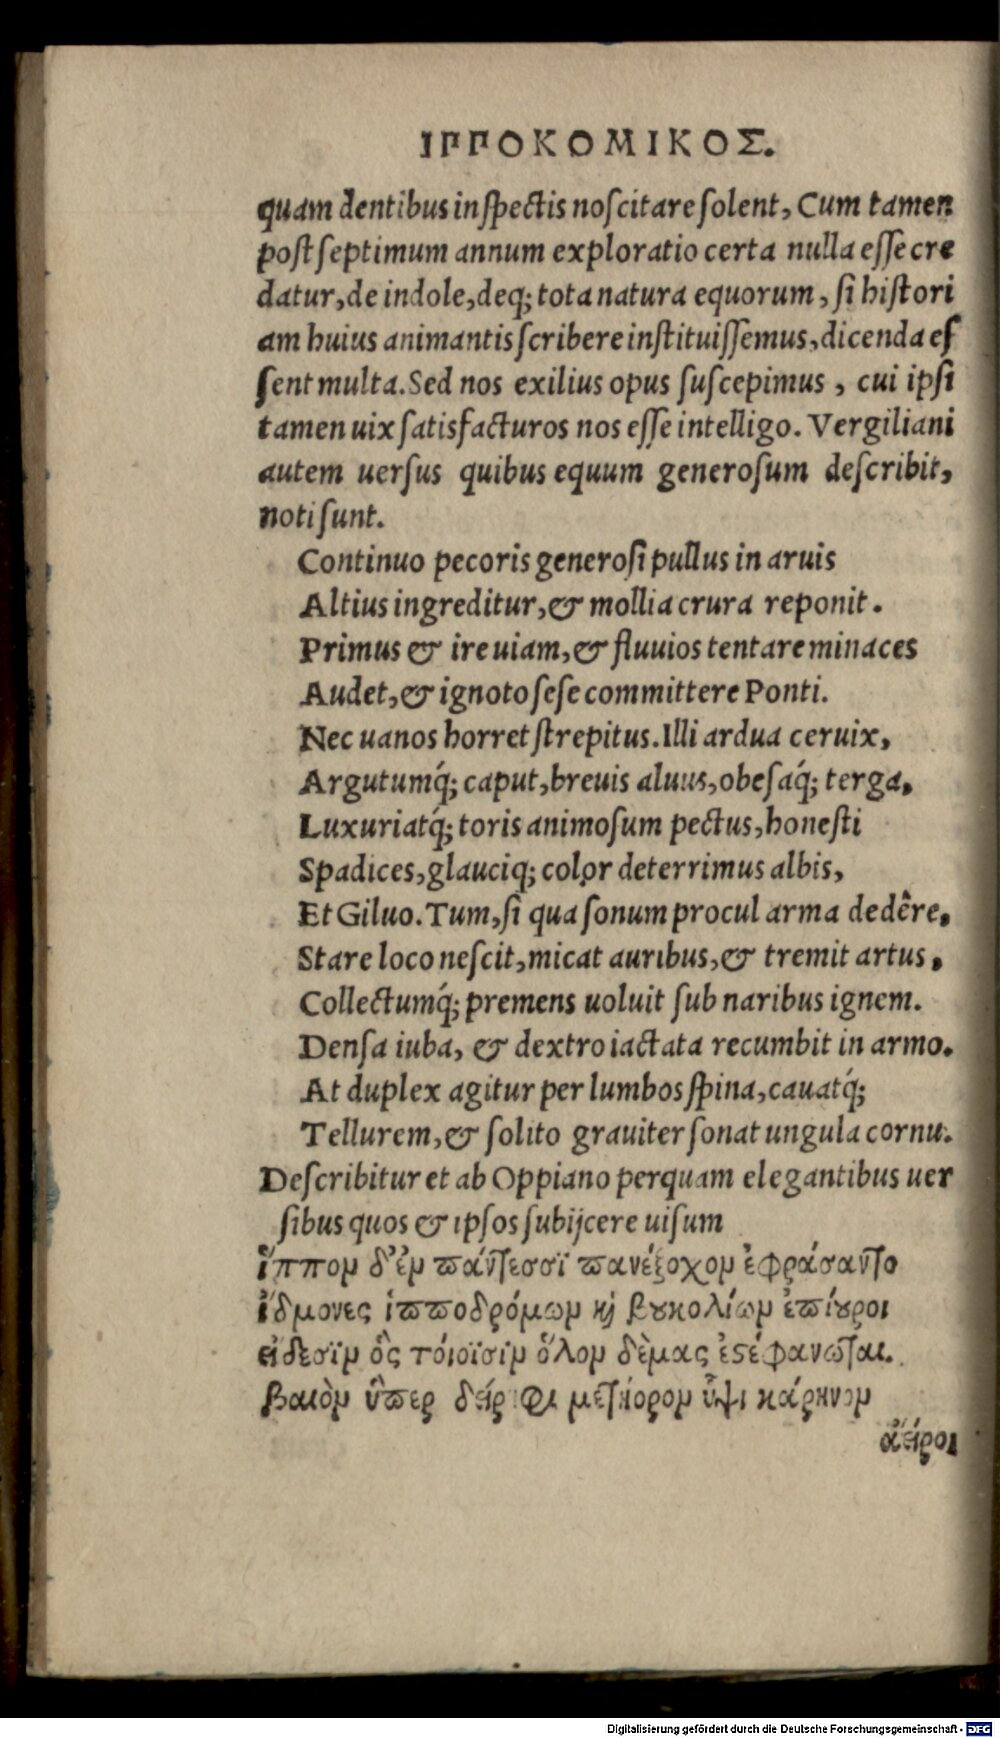 ΙΡΡΟΚΟΜΙΚΟΣ.
quam dentibus inſpectis noſcitare ſolent, Cum tamen
poſt ſeptimum annum exploratio certa nulla eſſe cre
datur, de indole, deq; tota natura equorum, ſi hiſtori
am huius animantis ſcribere inſtituiſſemus, dicenda eſ
ſent multa. Sed nos exilius opus ſuſcepimus, cui ipſi
tamen uix ſatisfacturos nos eſſe intelligo. Vergiliani
autem uerſus quibus equum generoſum deſcribit,
noti ſunt.
Continuo pecoris generoſi pullus in aruis
Altius ingreditur, & mollia crura reponit.
Primus & ire uiam, & fluuios tentare minaces
Audet, & ignoto ſeſe committere Ponti.
Nec uanos horret ſtrepitus. Illi ardua ceruix,
Argutumq́; caput, breuis aluus, obeſaq́; terga,
Luxuriatq́; toris animoſum pectus, honeſti
Spadices, glauciq; color deterrimus albis,
Et Giluo. Tum, ſi qua ſonum procul arma dedêre,
Stare loco neſcit, micat auribus, & tremit artus,
Collectumq́; premens uoluit ſub naribus ignem.
Denſa iuba, & dextro iactata recumbit in armo.
At duplex agitur per lumbos ſpina, cauatq́;
Tellurem, & ſolito grauiter ſonat ungula cornu.
Deſcribitur et ab Oppiano perquam elegantibus uer
ſibus quos & ipſos ſubijcere uiſum
ἵππον δ' ἐν πάντεσσϊ πανέξοχον ἐφράσαντο
ἴδμονες ἱπποδρόμων καὶ βουκολίων ἐπίουροι
εἴδεσϊν ὃς τόιοϊσιν ὅλον δὲμας ἐστέφανωται.
βαιὸν ὕπερ δείρηφι μετήορον ὕψι κάρηνον
ἀείροι
Digitalisierung gefördert durch die Deutsche Forschungsgemeinschaft - DFG